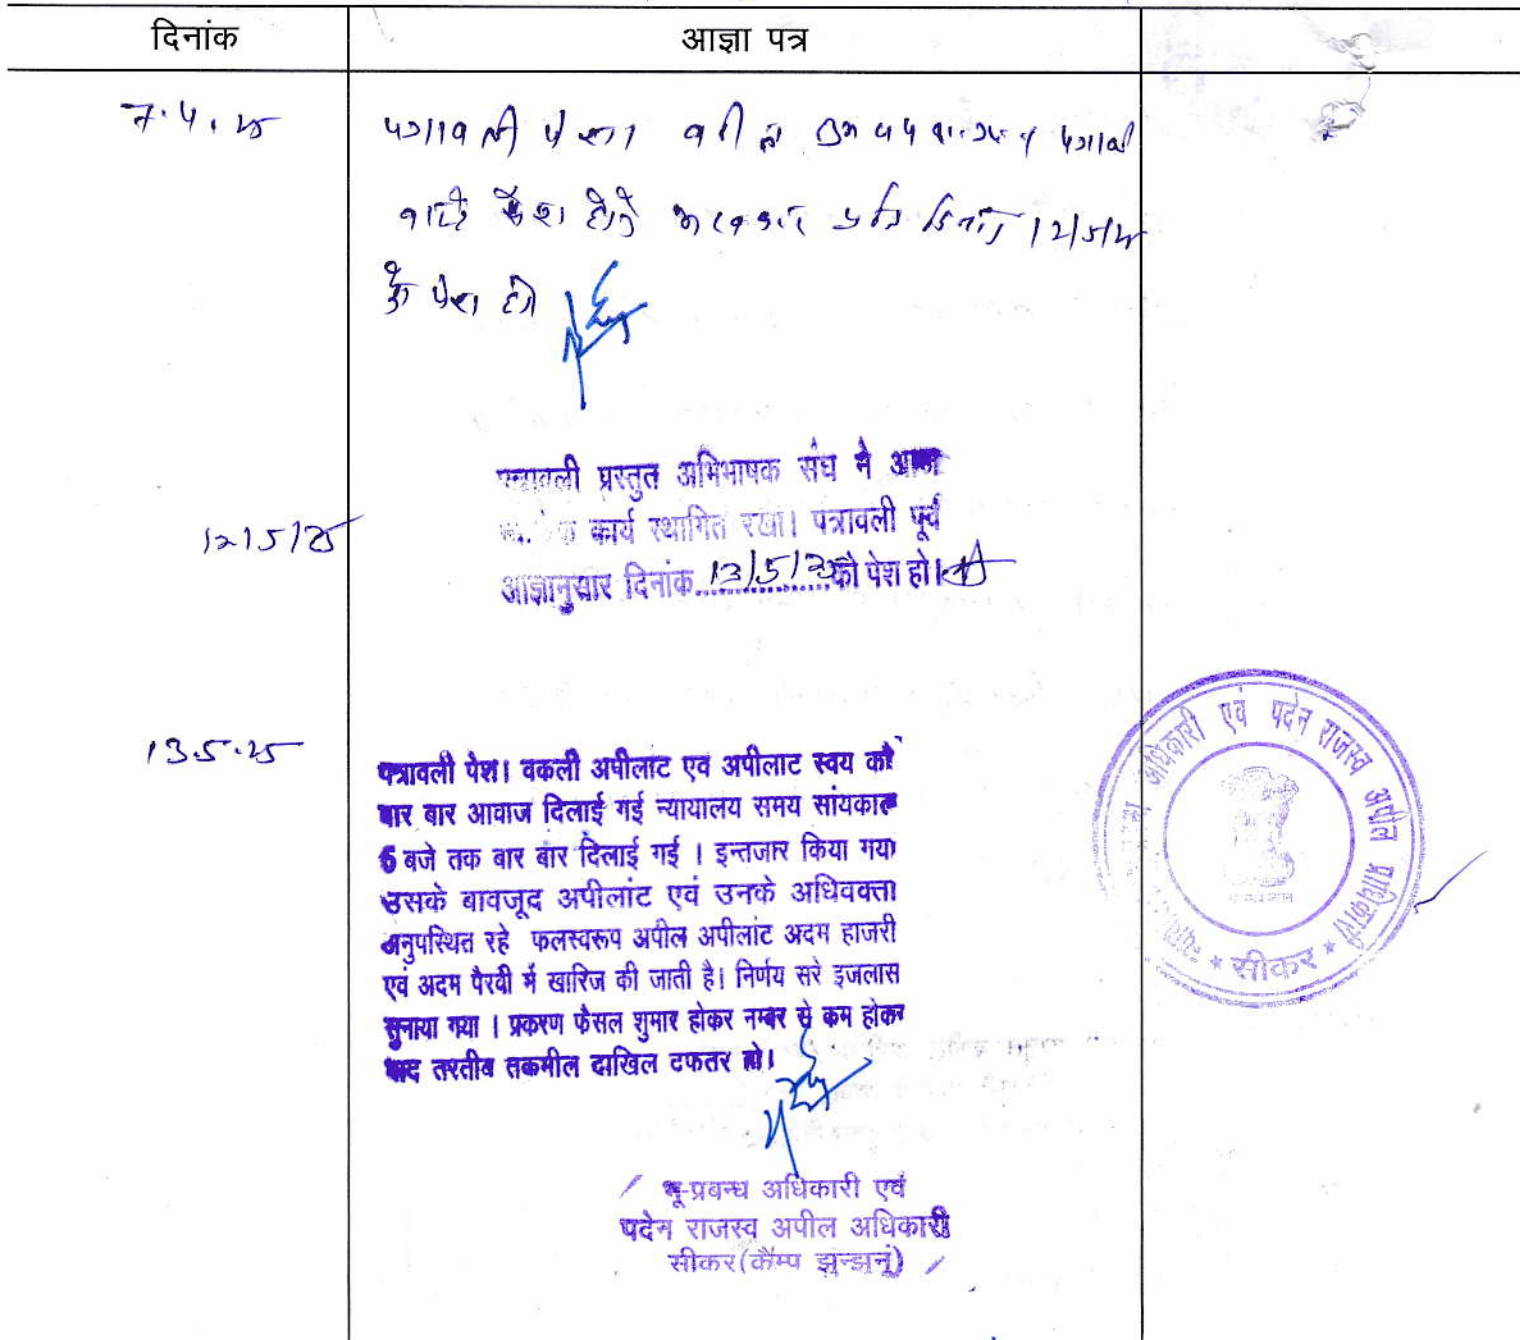 दिनांक
आज्ञा पत्र
7.4.25
पत्रावली पेश। वकील उभयपक्ष पत्रावली
वास्ते दिनांक 12/5/25
को पेश हो
पत्रावली प्रस्तुत अभिभाषक संघ ने आज
कार्य स्थागित रखा। पत्रावली पूर्व
12/5/25
आज्ञानुसार दिनांक 13/5/25 को पेश हो।
13.5.25
पत्रावली पेश। वकली अपीलांट एव अपीलाट स्वय को
बार बार आवाज दिलाई गई न्यायालय समय सांयकाल
5 बजे तक बार बार दिलाई गई । इन्तजार किया गया
उसके बावजूद अपीलांट एवं उनके अधिवक्ता
अनुपस्थित रहे फलस्वरूप अपील अपीलांट अदम हाजरी
एवं अदम पैरवी में खारिज की जाती है। निर्णय सरे इजलास
सुनाया गया । प्रकरण फैसल शुमार होकर नम्बर से कम होकर
बाद तरतीव तकमील दाखिल टफतर हो।
भू-प्रबन्ध अधिकारी एवं
पदेन राजस्व अपील अधिकारी
सीकर(कैम्प झुन्झुनूं)
अधिकारी एवं पदेन राजस्व अपील प्राधिकारी
* सीकर *